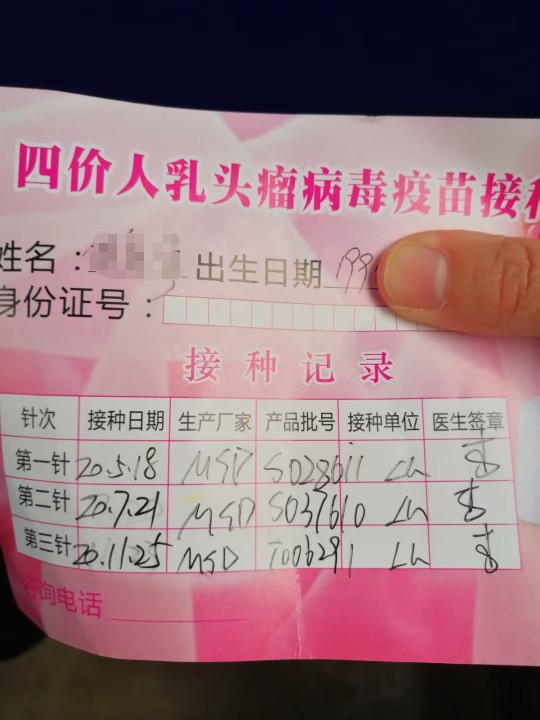 四价人乳头瘤病毒疫苗接种
姓名： 出生日期 199
身份证号：
接种记录
针次 接种日期 生产厂家 产品批号 接种单位 医生签章
第一针 20.5.18 MSD S028611
第二针 20.7.21 MSD S037610
第三针 20.11.25 MSD T006291
咨询电话